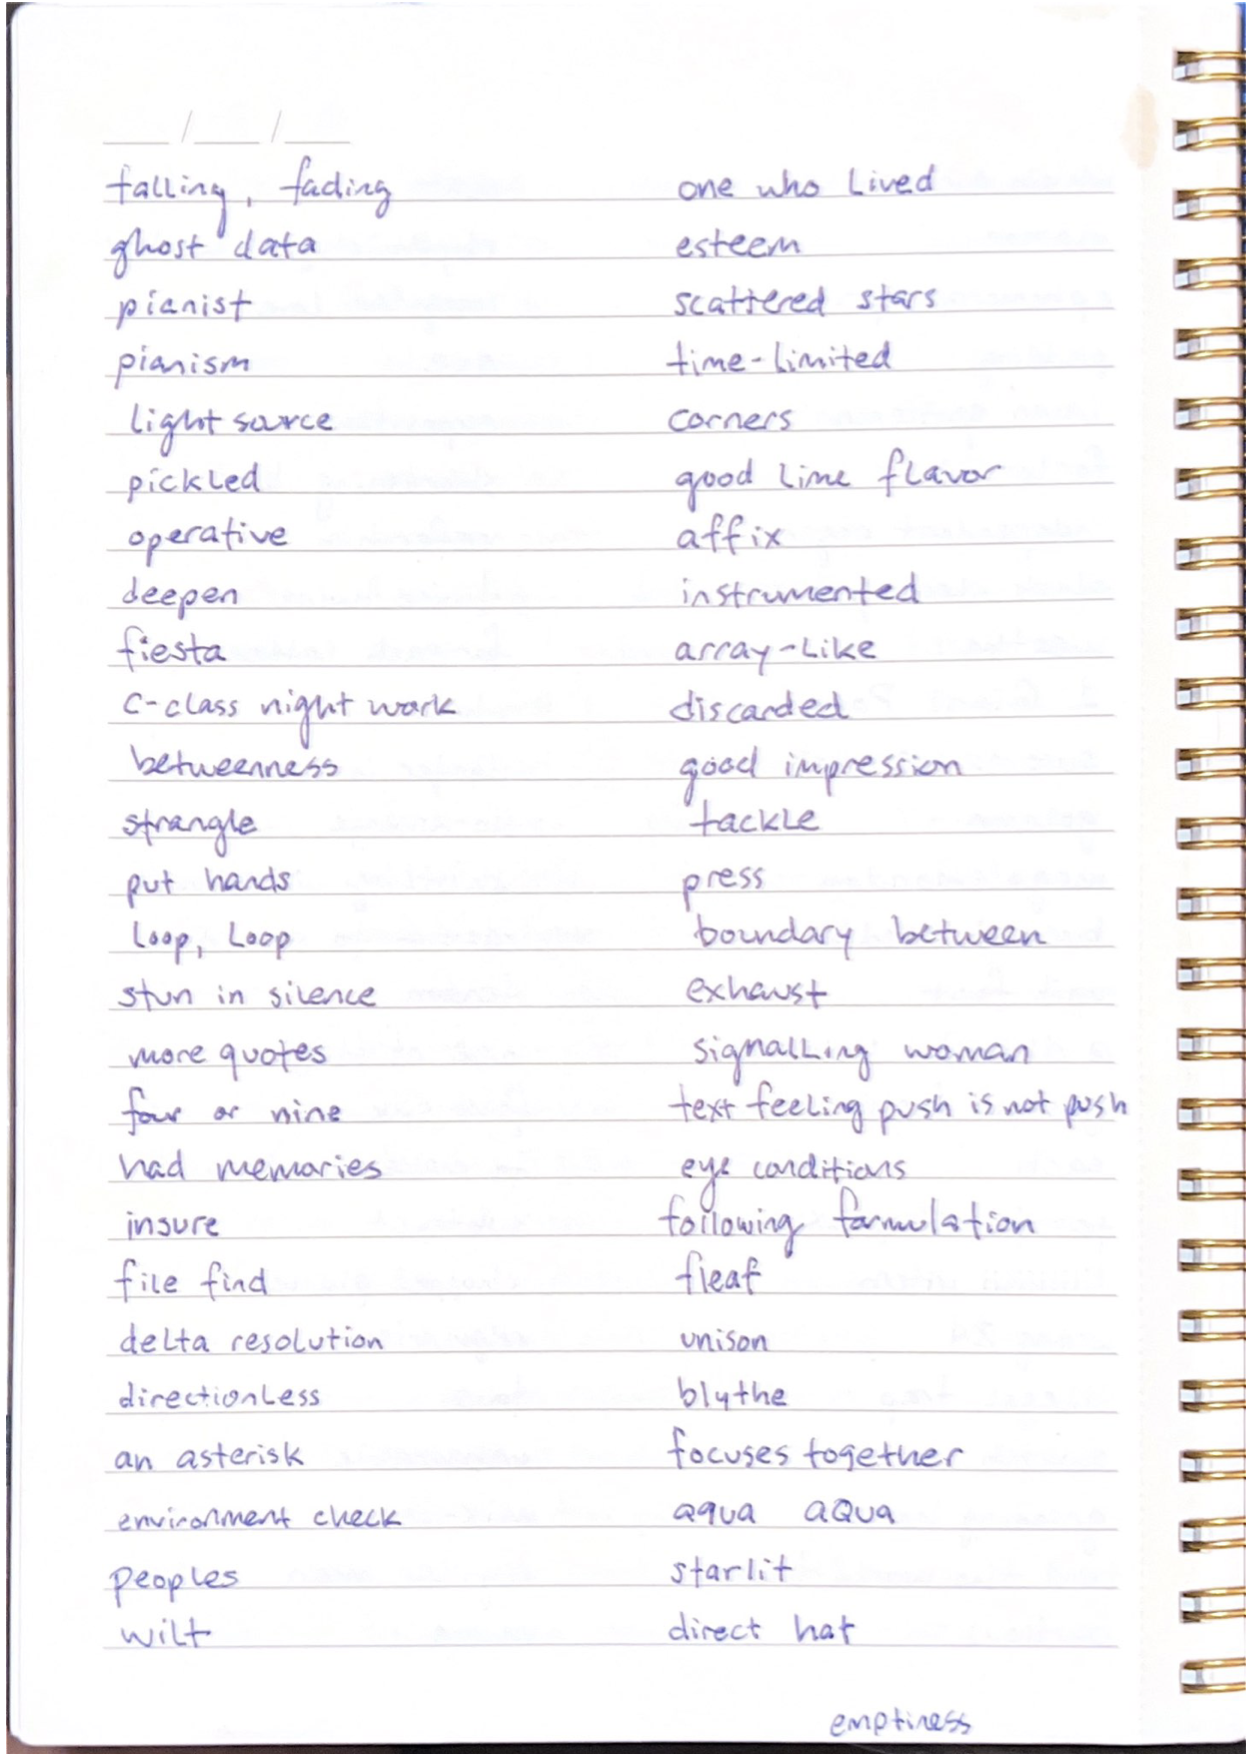 falling, fading
ghost data
pianist
pianism
light source
pickled
operative
deepen
fiesta
C-class night work
betweenness
strangle
put hands
loop, loop
stun in silence
more quotes
four or nine
had memories
insure
file find
delta resolution
directionless
an asterisk
environment check
peoples
wilt
one who lived
esteem
scattered stars
time-limited
corners
good lime flavor
affix
instrumented
array-like
discarded
good impression
tackle
press
boundary between
exhaust
signalling woman
text feeling push is not push
eye conditions
following formulation
fleaf
unison
blythe
focuses together
aqua aQua
starlit
direct hat
emptiness